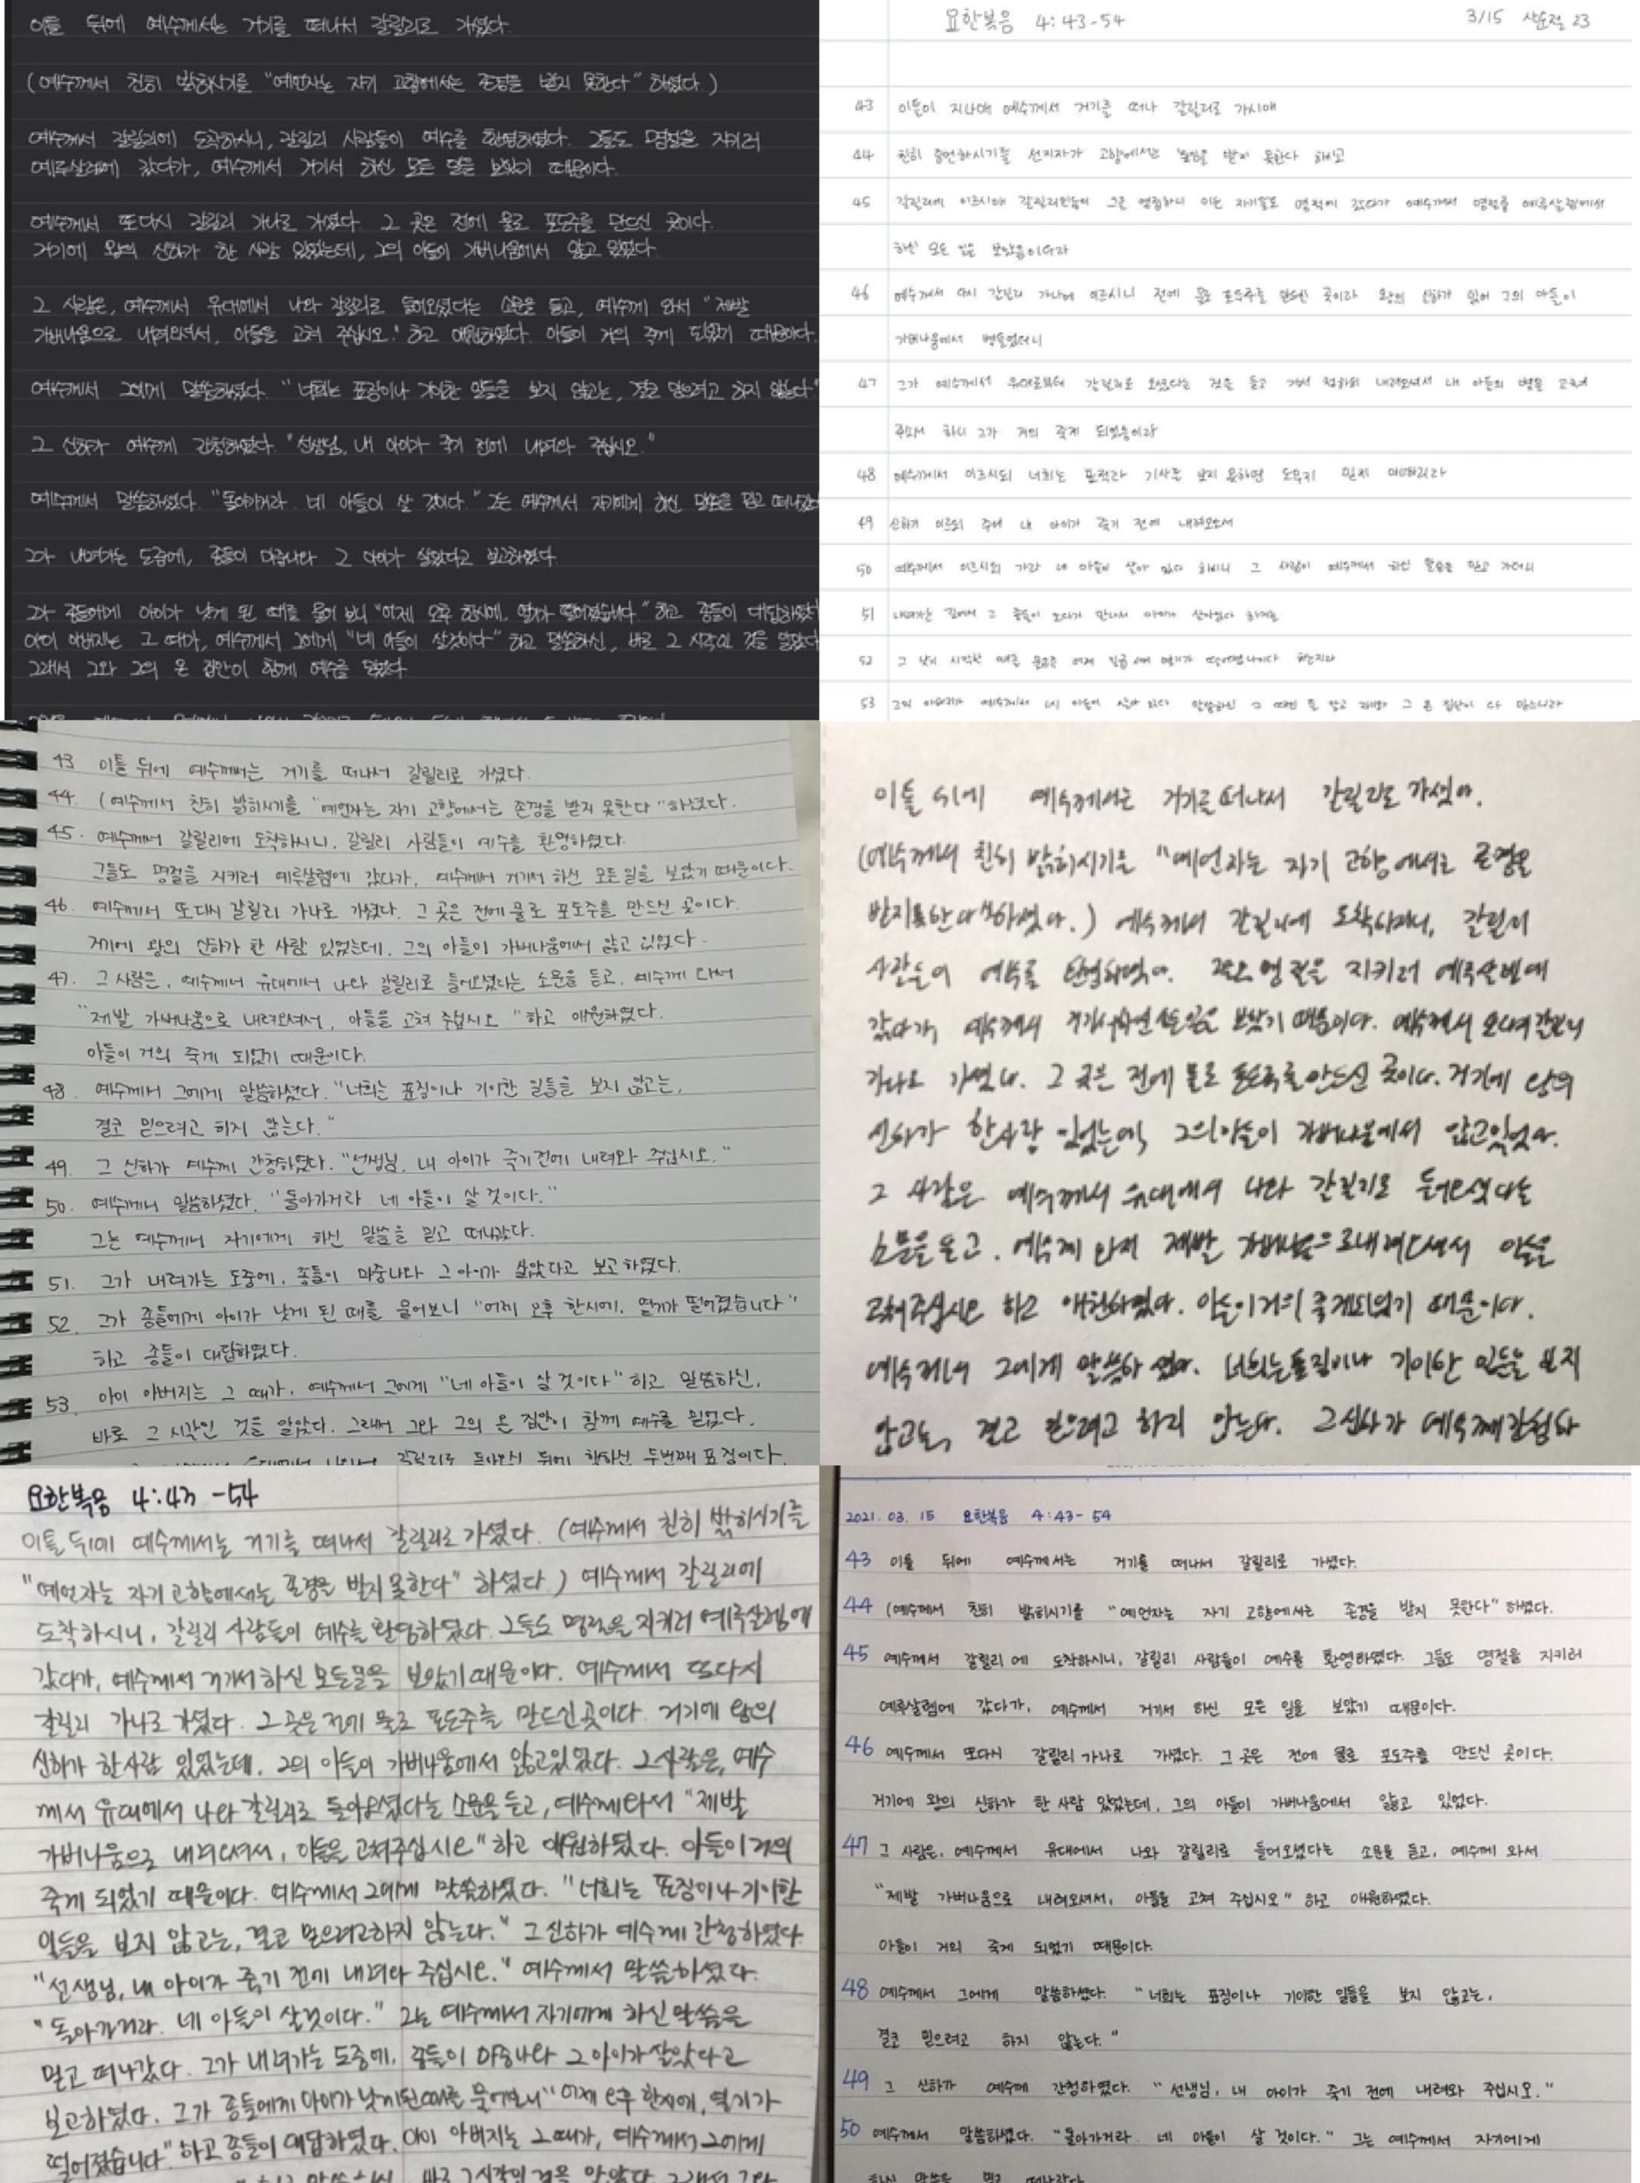 이틀 뒤에 예수께서는 거기를 떠나서 갈릴리로 가셨다.
(예수께서 친히 밝히시기를 "예언자는 자기 고향에서는 존경을 받지 못한다" 하셨다.)
예수께서 갈릴리에 도착하시니, 갈릴리 사람들이 예수를 환영하였다. 그들도 명절을 지키러
예루살렘에 갔다가, 예수께서 거기서 하신 모든 일을 보았기 때문이다.
예수께서 또다시 갈릴리 가나로 가셨다. 그 곳은 전에 물로 포도주를 만드신 곳이다.
거기에 왕의 신하가 한 사람 있었는데, 그의 아들이 가버나움에서 앓고 있었다.
그 사람은, 예수께서 유대에서 나와 갈릴리로 들어오셨다는 소문을 듣고, 예수께 와서 "제발
가버나움으로 내려오셔서, 아들을 고쳐 주십시오." 하고 애원하였다. 아들이 거의 죽게 되었기 때문이다.
예수께서 그에게 말씀하셨다. "너희는 표징이나 기이한 일들을 보지 않고는, 결코 믿으려고 하지 않는다."
그 신하가 예수께 간청하였다. "선생님, 내 아이가 죽기 전에 내려와 주십시오."
예수께서 말씀하셨다. "돌아가거라. 네 아들이 살 것이다." 그는 예수께서 자기에게 하신 말씀을 믿고 떠나갔
그가 내려가는 도중에, 종들이 마중나와 그 아이가 살았다고 보고하였다.
그가 종들에게 아이가 낫게 된 때를 물어 보니 "어제 오후 한시에, 열기가 떨어졌습니다." 하고 종들이 대답하였
아이 아버지는 그 때가, 예수께서 그에게 "네 아들이 살것이다" 하고 말씀하신, 바로 그 시각인 것을 알았다
그래서 그와 그의 온 집안이 함께 예수를 믿었다.
요한복음 4:43-54 3/15 사순절 23
43 이틀이 지나매 예수께서 거기를 떠나 갈릴리로 가시며
44 친히 증언하시기를 선지자가 고향에서는 높임을 받지 못한다 하시고
45 갈릴리에 이르시매 갈릴리인들이 그를 영접하니 이는 자기들도 명절에 갔다가 예수께서 명절중 예루살렘에서
하신 모든 일을 보았음이더라
46 예수께서 다시 갈릴리 가나에 이르시니 전에 물로 포도주를 만드신 곳이라 왕의 신하가 있어 그의 아들이
가버나움에서 병들었더니
47 그가 예수께서 유대로부터 갈릴리로 오셨다는 것을 듣고 가서 청하되 내려오셔서 내 아들의 병을 고쳐
주소서 하니 그가 거의 죽게 되었음이라
48 예수께서 이르시되 너희는 표적과 기사를 보지 못하면 도무지 믿지 아니하리라
49 신하가 이르되 주여 내 아이가 죽기 전에 내려오소서
50 예수께서 이르시되 가라 네 아들이 살아 있다 하시니 그 사람이 예수께서 하신 말씀을 믿고 가더니
51 내려가는 길에서 그 종들이 오다가 만나서 아이가 살아있다 하거늘
52 그 낫기 시작한 때를 물은즉 어제 일곱 시에 열기가 떨어졌나이다 하는지라
53 그의 아버지가 예수께서 네 아들이 살아 있다 말씀하신 그 때인 줄 알고 자기와 그 온 집안이 다 믿으니라
43 이틀 뒤에 예수께서는 거기를 떠나서 갈릴리로 가셨다.
44. (예수께서 친히 밝히시기를 "예언자는 자기 고향에서는 존경을 받지 못한다"하셨다.
45. 예수께서 갈릴리에 도착하시니, 갈릴리 사람들이 예수를 환영하였다.
그들도 명절을 지키러 예루살렘에 갔다가, 예수께서 거기서 하신 모든 일을 보았기 때문이다.
46. 예수께서 또다시 갈릴리 가나로 가셨다. 그 곳은 전에 물로 포도주를 만드신 곳이다.
거기에 왕의 신하가 한 사람 있었는데, 그의 아들이 가버나움에서 앓고 있었다.
47. 그 사람은, 예수께서 유대에서 나와 갈릴리로 들어오셨다는 소문을 듣고, 예수께 와서
"제발 가버나움으로 내려오셔서, 아들을 고쳐 주십시오"하고 애원하였다.
아들이 거의 죽게 되었기 때문이다.
48. 예수께서 그에게 말씀하셨다. "너희는 표징이나 기이한 일들을 보지 않고는,
결코 믿으려고 하지 않는다."
49. 그 신하가 예수께 간청하였다. "선생님, 내 아이가 죽기전에 내려와 주십시오."
50. 예수께서 말씀하셨다. "돌아가거라 네 아들이 살 것이다."
그는 예수께서 자기에게 하신 말씀을 믿고 떠나갔다.
51. 그가 내려가는 도중에, 종들이 마중나와 그 아이가 살았다고 보고하였다.
52. 그가 종들에게 아이가 낫게 된 때를 물어보니 "어제 오후 한시에, 열기가 떨어졌습니다"
하고 종들이 대답하였다.
53. 아이 아버지는 그 때가, 예수께서 그에게 "네 아들이 살 것이다"하고 말씀하신,
바로 그 시각인 것을 알았다. 그래서 그와 그의 온 집안이 함께 예수를 믿었다.
갈릴리로 돌아오신 뒤에 행하신 두번째 표징이다.
이틀 뒤에 예수께서는 거기를 떠나서 갈릴리로 가셨다.
(예수께서 친히 밝히시기를 "예언자는 자기 고향에서는 존경을
받지못한다"하셨다.) 예수께서 갈릴리에 도착하시니, 갈릴리
사람들이 예수를 환영하였다. 그들도 명절을 지키러 예루살렘에
갔다가, 예수께서 거기서 일을 보았기 때문이다. 예수께서 또다시 갈릴리
가나로 가셨다. 그 곳은 전에 물로 포도주를 만드신 곳이다. 거기에 왕의
신하가 한사람 있었는데, 그의 아들이 가버나움에서 앓고있었다.
그 사람은 예수께서 유대에서 나와 갈릴리로 들어오셨다는
소문을 듣고, 예수께 와서 제발 가버나움으로 내려오셔서 아들을
고쳐주십시오 하고 애원하였다. 아들이 거의 죽게되었기 때문이다.
예수께서 그에게 말씀하셨다. 너희는 표징이나 기이한 일들을 보지
않고는, 결코 믿으려고 하지 않는다. 그 신하가 예수께 간청하
요한복음 4:43-54
이틀 뒤에 예수께서는 거기를 떠나서 갈릴리로 가셨다. (예수께서 친히 밝히시기를
"예언자는 자기고향에서는 존경을 받지못한다" 하셨다.) 예수께서 갈릴리에
도착하시니, 갈릴리 사람들이 예수를 환영하였다. 그들도 명절을 지키러 예루살렘에
갔다가, 예수께서 거기서 하신 모든일을 보았기때문이다. 예수께서 또다시
갈릴리 가나로 가셨다. 그 곳은 전에 물로 포도주를 만드신곳이다. 거기에 왕의
신하가 한사람 있었는데, 그의 아들이 가버나움에서 앓고있었다. 그사람은, 예수
께서 유대에서 나와 갈릴리로 들어오셨다는 소문을 듣고, 예수께와서 "제발
가버나움으로 내려오셔서, 아들을 고쳐주십시오" 하고 애원하였다. 아들이 거의
죽게 되었기 때문이다. 예수께서 그에게 말씀하셨다. "너희는 표징이나 기이한
일들을 보지 않고는, 결코 믿으려고하지 않는다." 그 신하가 예수께 간청하였다.
"선생님, 내 아이가 죽기 전에 내려와 주십시오." 예수께서 말씀하셨다.
"돌아가거라. 네 아들이 살것이다." 그는 예수께서 자기에게 하신말씀을
믿고 떠나갔다. 그가 내려가는 도중에, 종들이 마중나와 그 아이가 살았다고
보고하였다. 그가 종들에게 아이가 낫게된때를 물어보니 "어제 오후 한시에, 열기가
떨어졌습니다." 하고 종들이 대답하였다. 아이 아버지는 그때가, 예수께서 그에게
2021. 03. 15 요한복음 4:43-54
43 이틀 뒤에 예수께서는 거기를 떠나서 갈릴리로 가셨다.
44 (예수께서 친히 밝히시기를 "예언자는 자기 고향에서는 존경을 받지 못한다" 하셨다.
45 예수께서 갈릴리에 도착하시니, 갈릴리 사람들이 예수를 환영하였다. 그들도 명절을 지키러
예루살렘에 갔다가, 예수께서 거기서 하신 모든 일을 보았기 때문이다.
46 예수께서 또다시 갈릴리 가나로 가셨다. 그 곳은 전에 물로 포도주를 만드신 곳이다.
거기에 왕의 신하가 한 사람 있었는데, 그의 아들이 가버나움에서 앓고 있었다.
47 그 사람은, 예수께서 유대에서 나와 갈릴리로 들어오셨다는 소문을 듣고, 예수께 와서
"제발 가버나움으로 내려오셔서, 아들을 고쳐 주십시오" 하고 애원하였다.
아들이 거의 죽게 되었기 때문이다.
48 예수께서 그에게 말씀하셨다. "너희는 표징이나 기이한 일들을 보지 않고는,
결코 믿으려고 하지 않는다."
49 그 신하가 예수께 간청하였다. "선생님, 내 아이가 죽기 전에 내려와 주십시오."
50 예수께서 말씀하셨다. "돌아가거라. 네 아들이 살 것이다." 그는 예수께서 자기에게
하신 말씀을 믿고 떠나갔다.